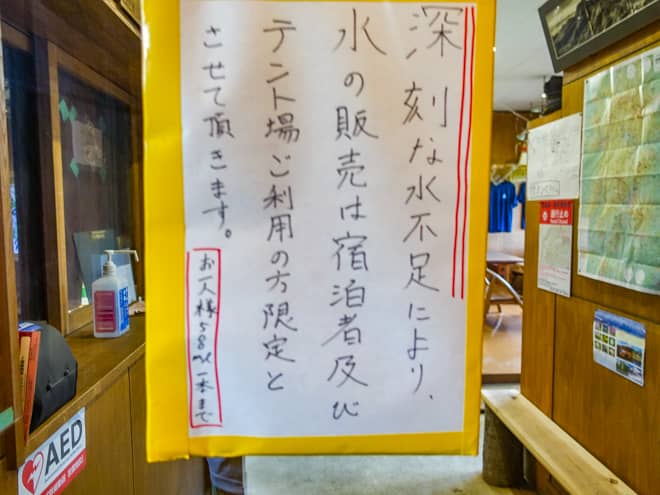 深刻な水不足により、
水の販売は宿泊者及び
テント場ご利用の方限定と
させて頂きます。
お一人様500ml一本まで
AED
通行止め